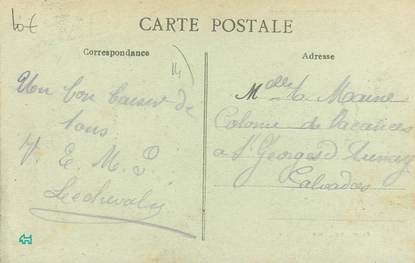 Lot
CARTE POSTALE
Correspondance
Un bon baiser de
tous
V. E. M. P
Lechevalier
Adresse
Melle la Maine
Colonie de Vacances
a St Georges d'Aunay
Calvados